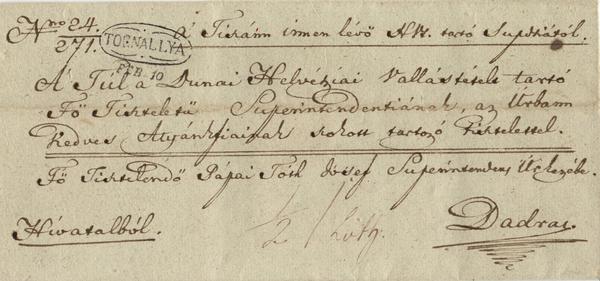 Nro 24.
271.
TORNALLYA
FEB. 10
A Tiszáninnen lévő H.V. tartó Supdtiától.
A Túl a Dunai Helvétziai Vallástételt tartó
Fő Tiszteletű Superintendentiának, az Urbann
Kedves Atyánkfiainak szokott tartozó tisztelettel.
Fő Tisztelendő Pápai Tóth Jósef Superintendens Úr kezébe.
Hivatalból.
1/2 Loth.
Dadras.